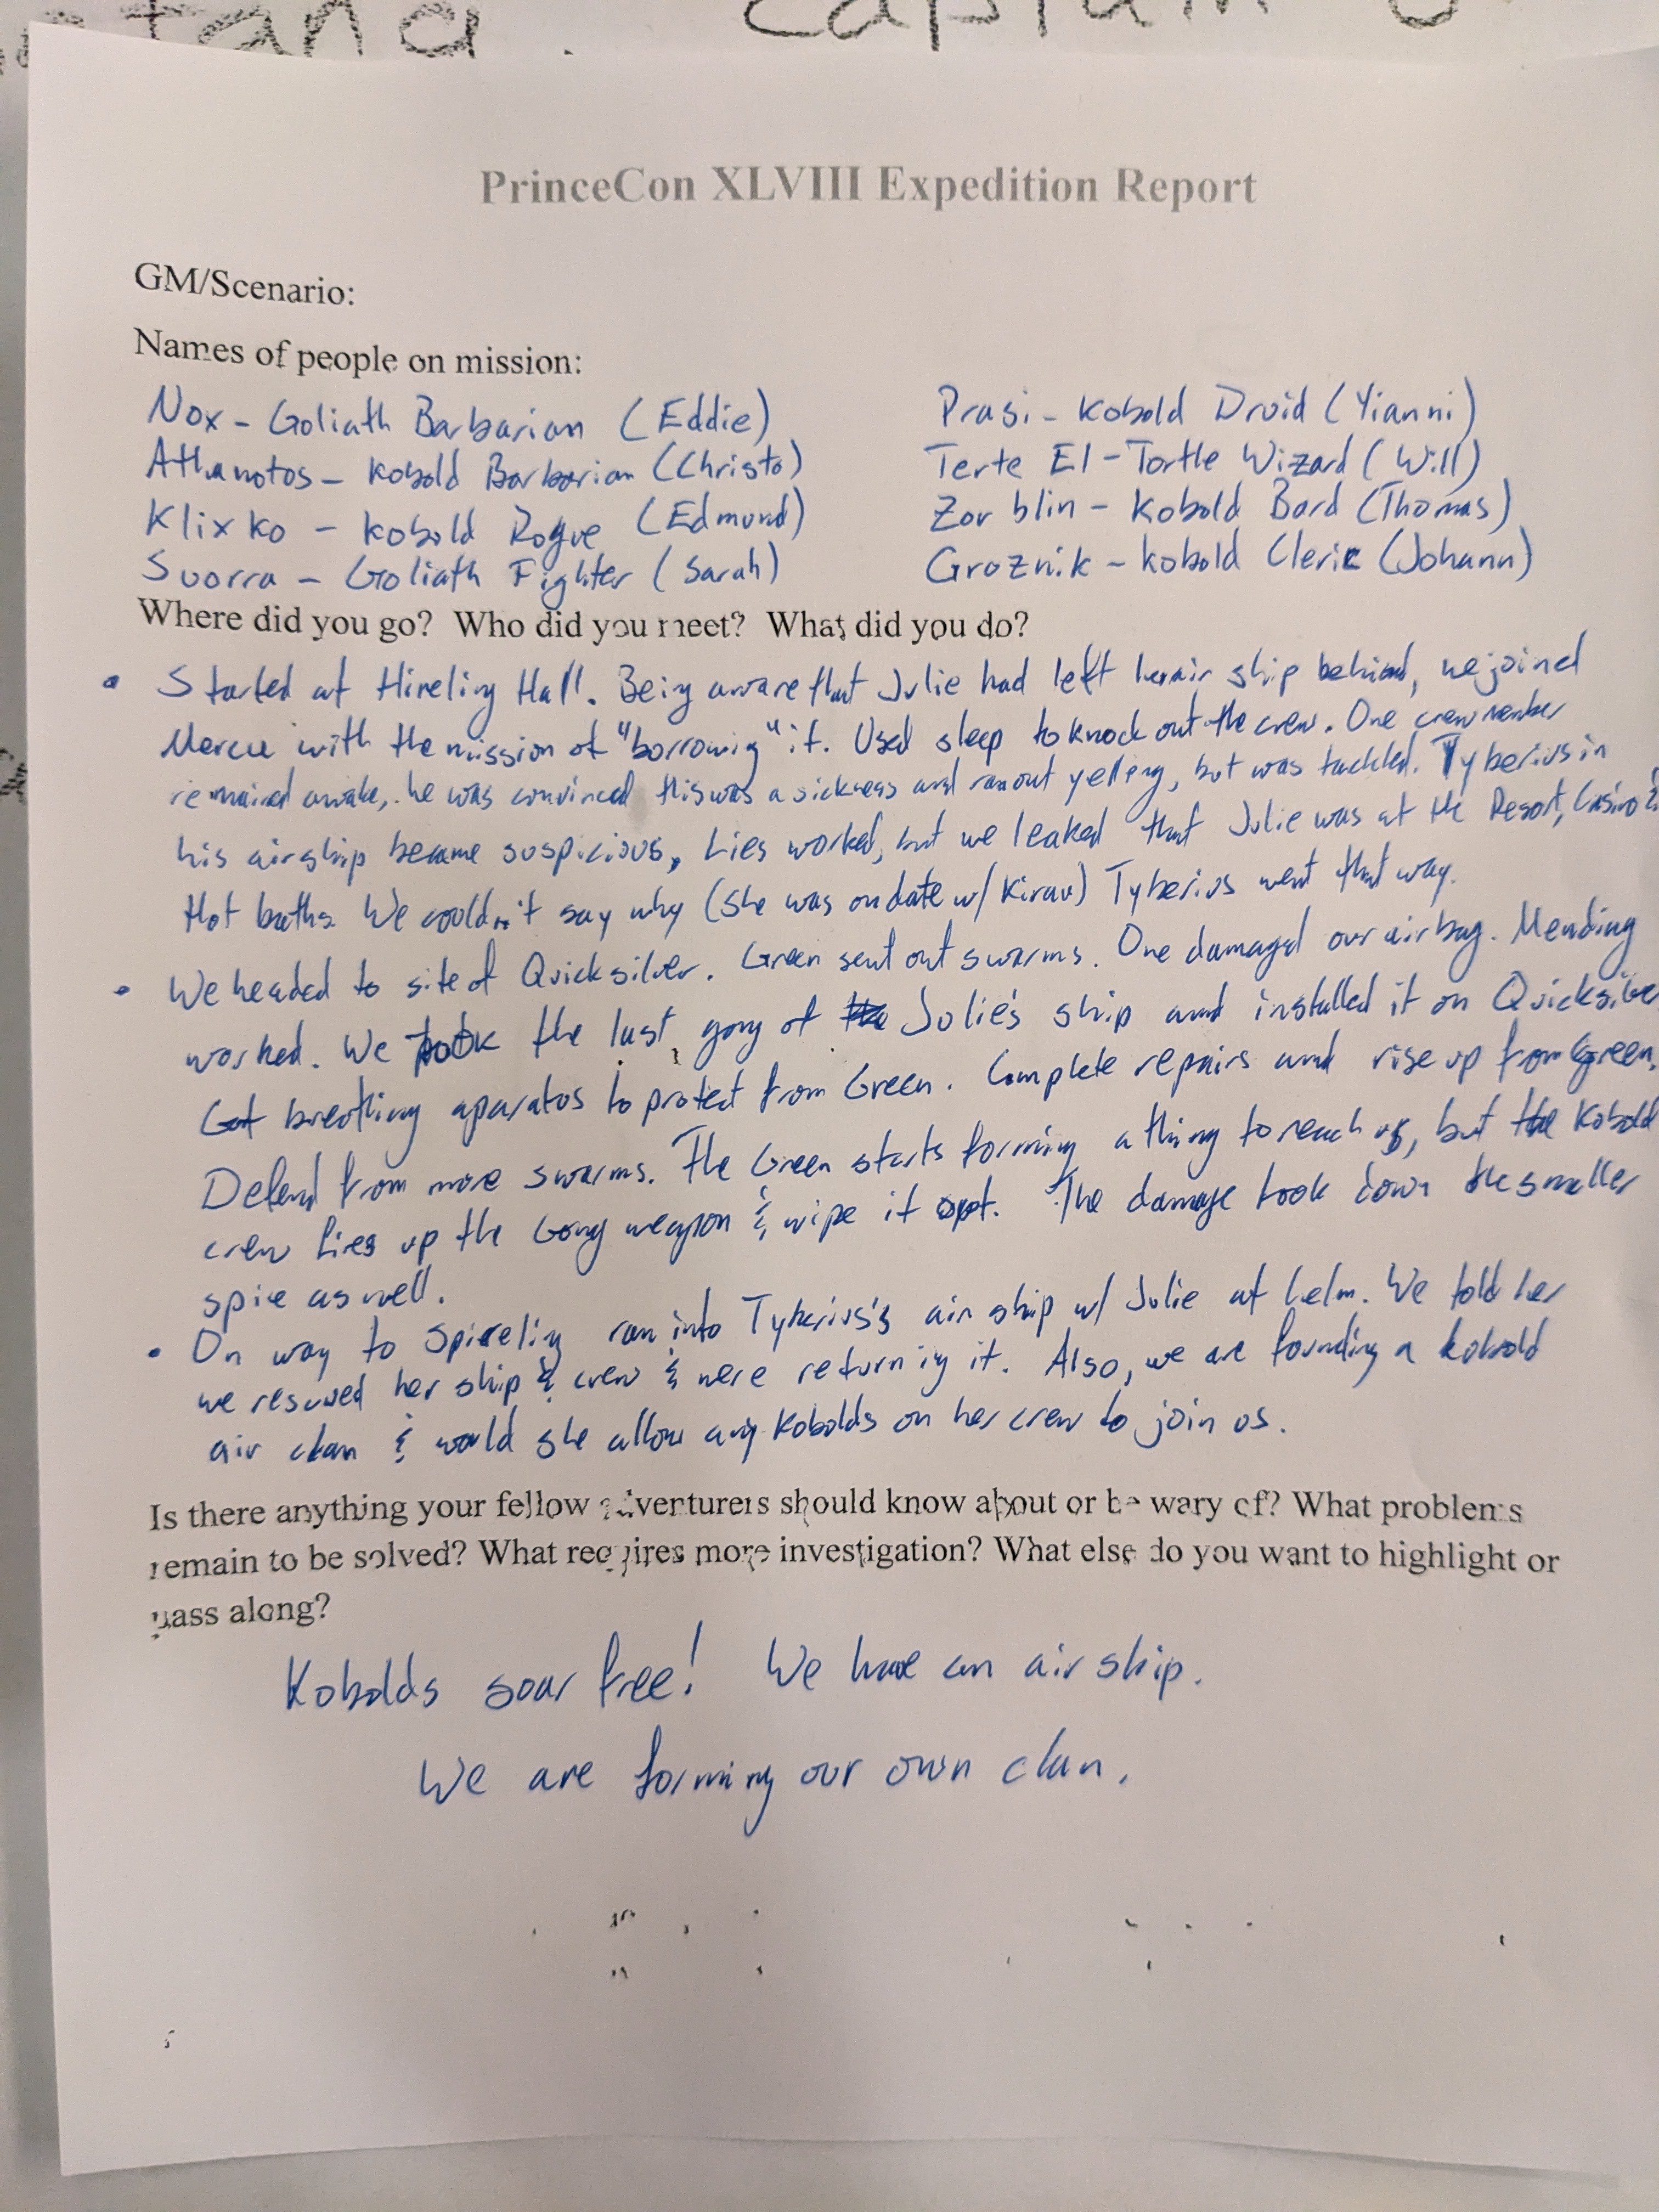 tana. Captain
PrinceCon XLVIII Expedition Report
GM/Scenario:
Names of people on mission:
Nox - Goliath Barbarian (Eddie)
Athanotos - Kobold Barbarian (Christo)
Klixko - Kobold Rogue (Edmund)
Suorra - Goliath Fighter (Sarah)
Prasi - Kobold Druid (Yianni)
Terte El - Tortle Wizard (Will)
Zorblin - Kobold Bard (Thomas)
Groznik - Kobold Cleric (Johann)
Where did you go? Who did you meet? What did you do?
• Started at Hireling Hall. Being aware that Julie had left her air ship behind, we joined
with the mission of "borrowing" it. Used sleep to knock out the crew. One crew member
remained awake, he was convinced this was a sickness and ran out yelling, but was tackled. Tyberius in
his airship became suspicious, Lies worked, but we leaked that Julie was at the Resort, Casino &
Hot baths. We couldn't say why (she was on date w/ Kirav) Tyberius went that way.
• We headed to site of Quicksilver. Green sent out swarms. One damaged our airbag. Mending
worked. We took the last gong of Julie's ship and installed it on Quicksilver
Got breathing aparatus to protect from Green. Complete repairs and rise up from Green.
Defend from more swarms. The Green starts forming a thing to reach us, but the Kobold
crew fires up the Gong weapon & wipe it out. The damage took down the smaller
spire as well.
• On way to Spireling ran into Tyberius's air ship w/ Julie at helm. We told her
we rescued her ship & crew & were returning it. Also, we are founding a kobold
air clan & would she allow any Kobolds on her crew to join us.
Is there anything your fellow adventurers should know about or be wary of? What problems
remain to be solved? What requires more investigation? What else do you want to highlight or
pass along?
Kobolds soar free! We have an air ship.
We are forming our own clan.